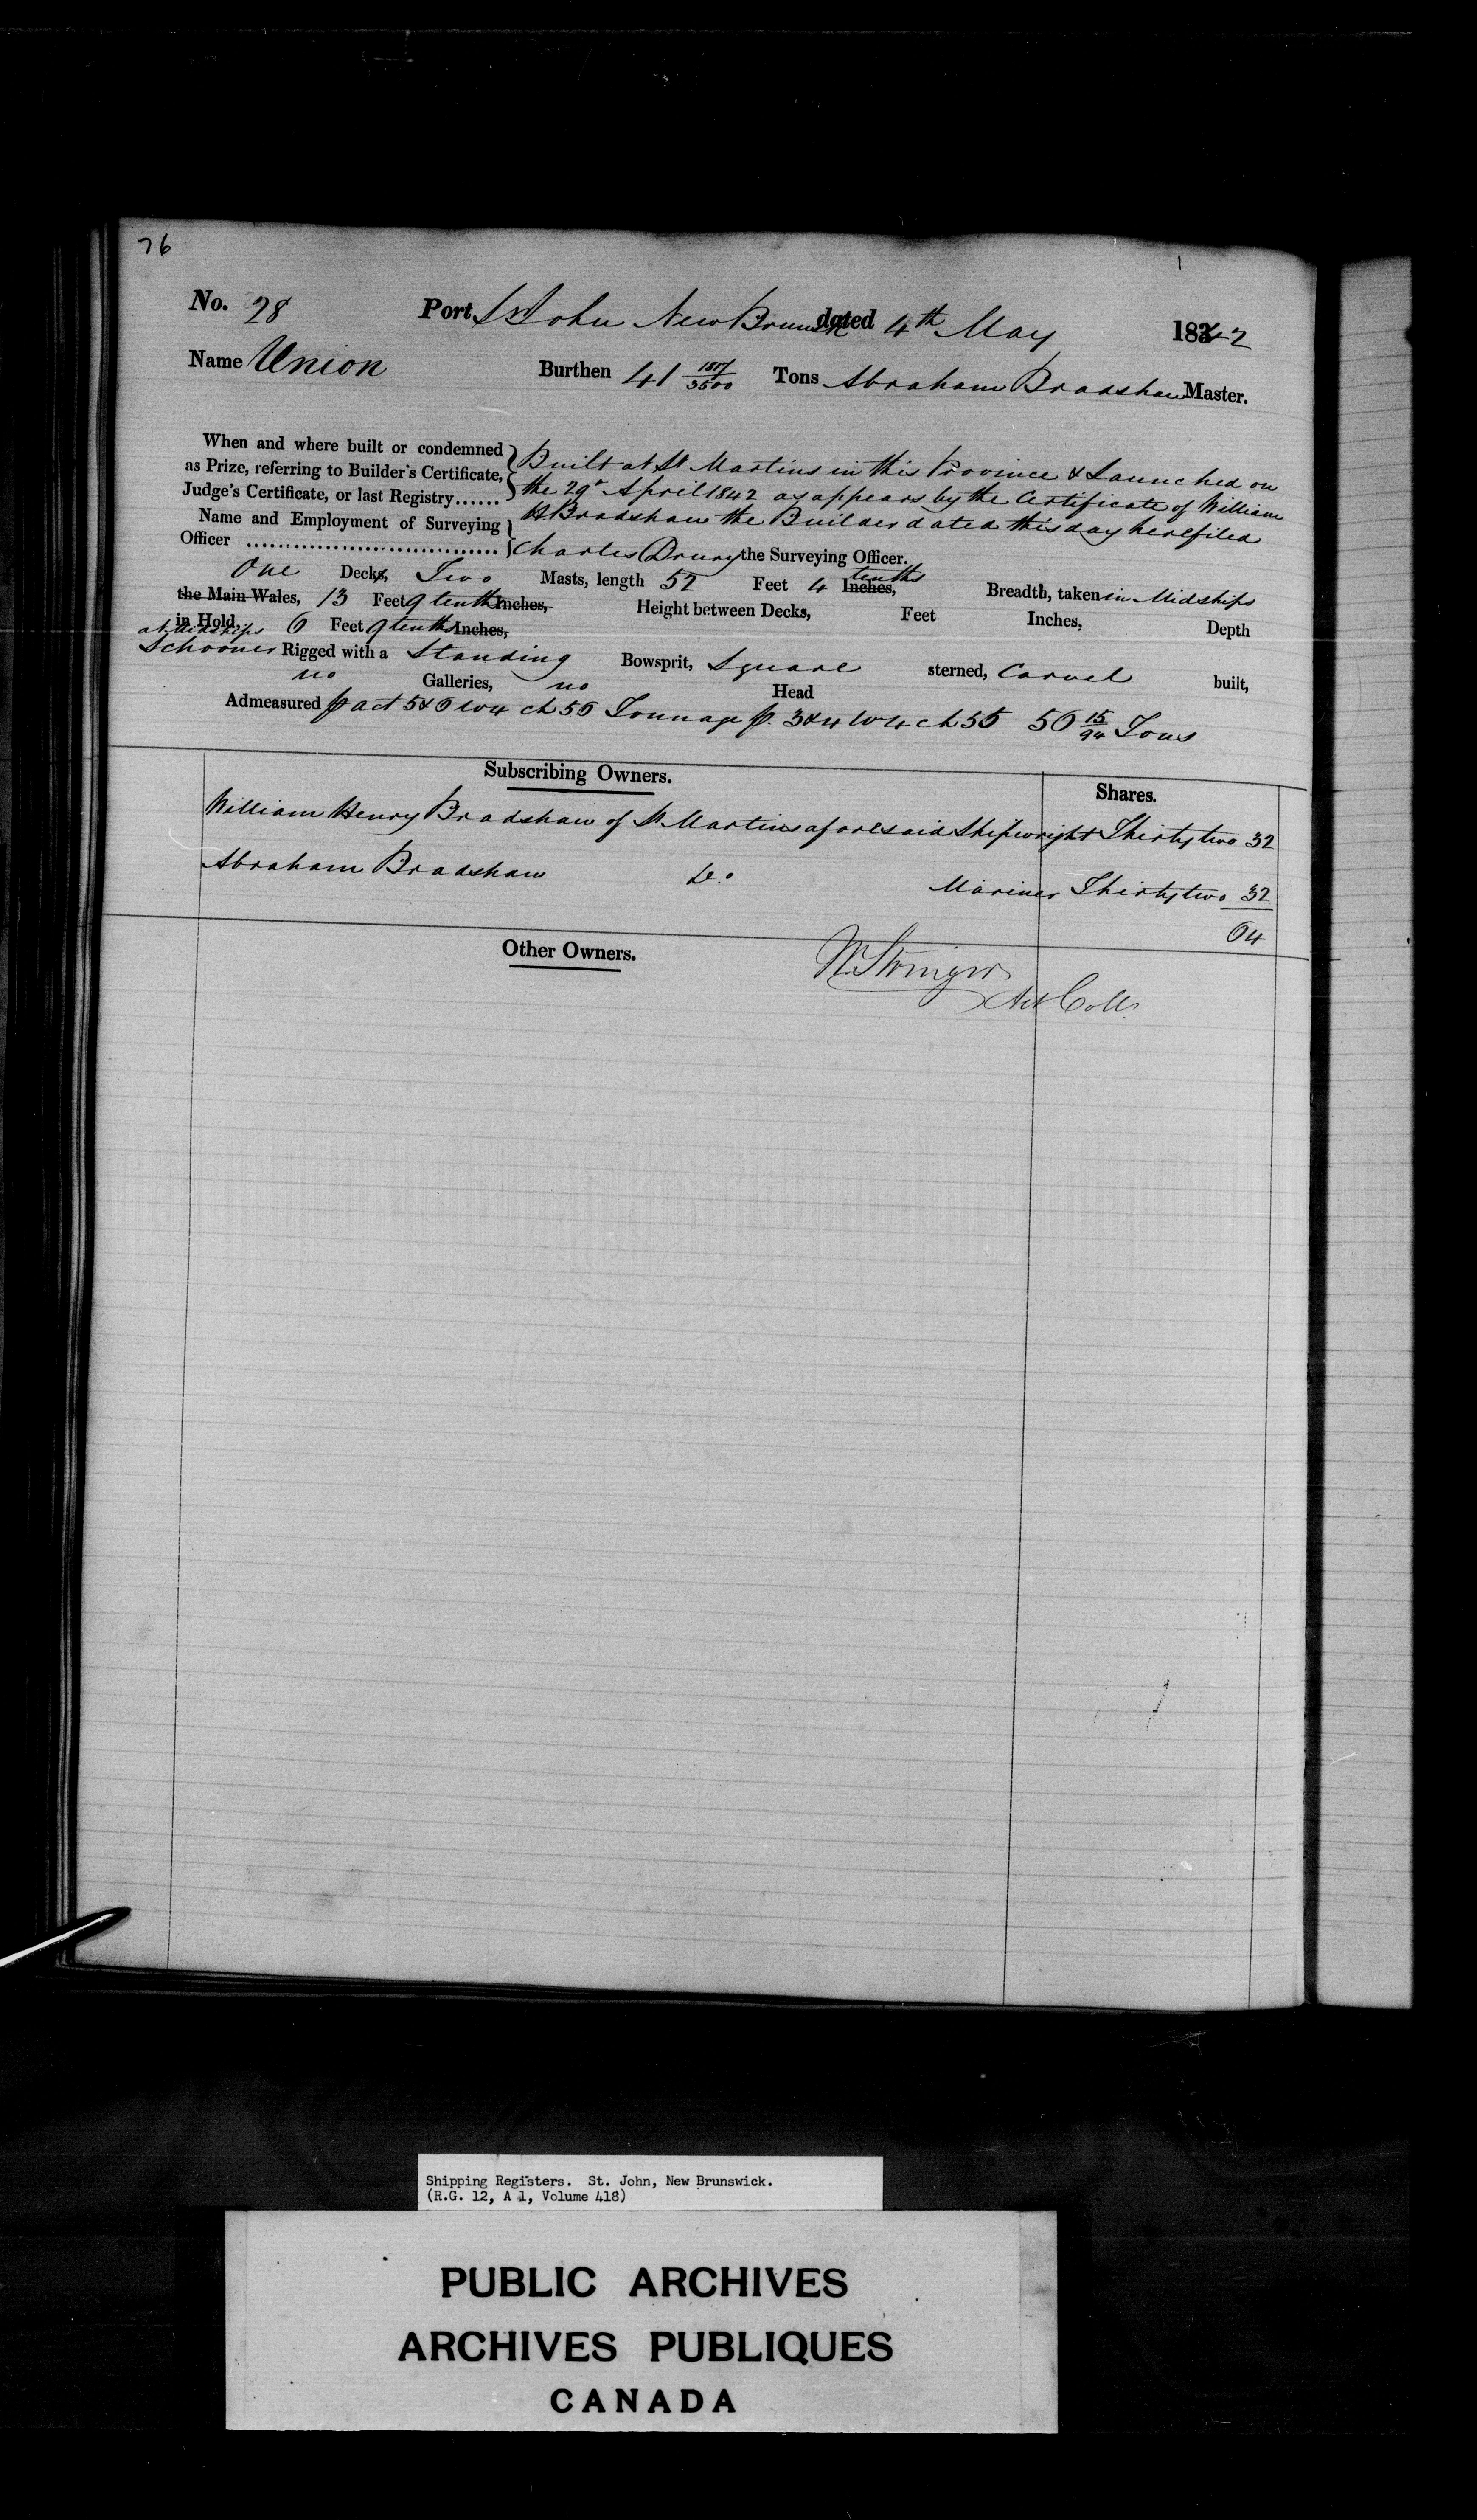 76
No. 28 Port St John New Brunswk dated 4th May 1842
Name Union Burthen 41 1817/3500 Tons Abraham Bradshaw Master.
When and where built or condemned
as Prize, referring to Builder's Certificate,
Judge's Certificate, or last Registry......
Built at St Martins in this Province & Launched on
the 29th April 1842 as appears by the Certificate of William
H Bradshaw the Builder dated this day here filed
Name and Employment of Surveying
Officer ................................. Charles Drury the Surveying Officer.
One Decks, Two Masts, length 52 Feet 4 tenths Inches, Breadth, taken in Midships
the Main Wales, 13 Feet 9 tenths Inches, Height between Decks, Feet Inches, Depth
in Hold, at Midships 6 Feet 9 tenths Inches,
Schooner Rigged with a Standing Bowsprit, Square sterned, Carvel built,
no Galleries, no Head
Admeasured p act 5 & 6 W 4 ch 56 Tonnage p. 3 & 4 W 4 ch 55 56 15/94 Tons
Subscribing Owners. Shares.
William Henry Bradshaw of St Martins aforesaid Shipwright Thirty two 32
Abraham Bradshaw Do. Mariner Thirty two 32
64
Other Owners.
Coll.
Shipping Registers. St. John, New Brunswick.
(R.G. 12, A 1, Volume 418)
PUBLIC ARCHIVES
ARCHIVES PUBLIQUES
CANADA